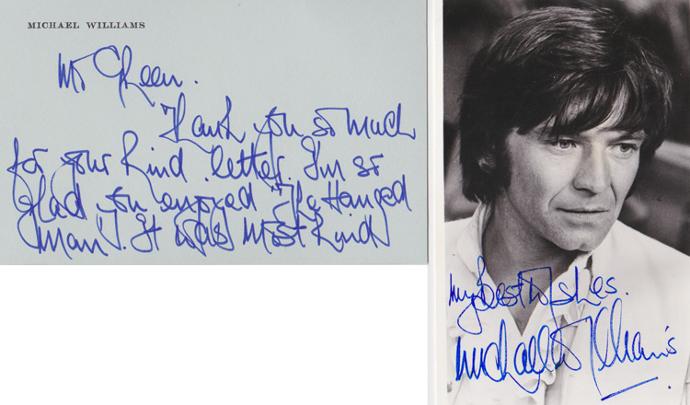 MICHAEL WILLIAMS
Mr Green.
Thank you so much
for your kind letter. I'm so
glad you enjoyed 'The Hanged
Man'. It was most kind
My best wishes.
Michael Williams